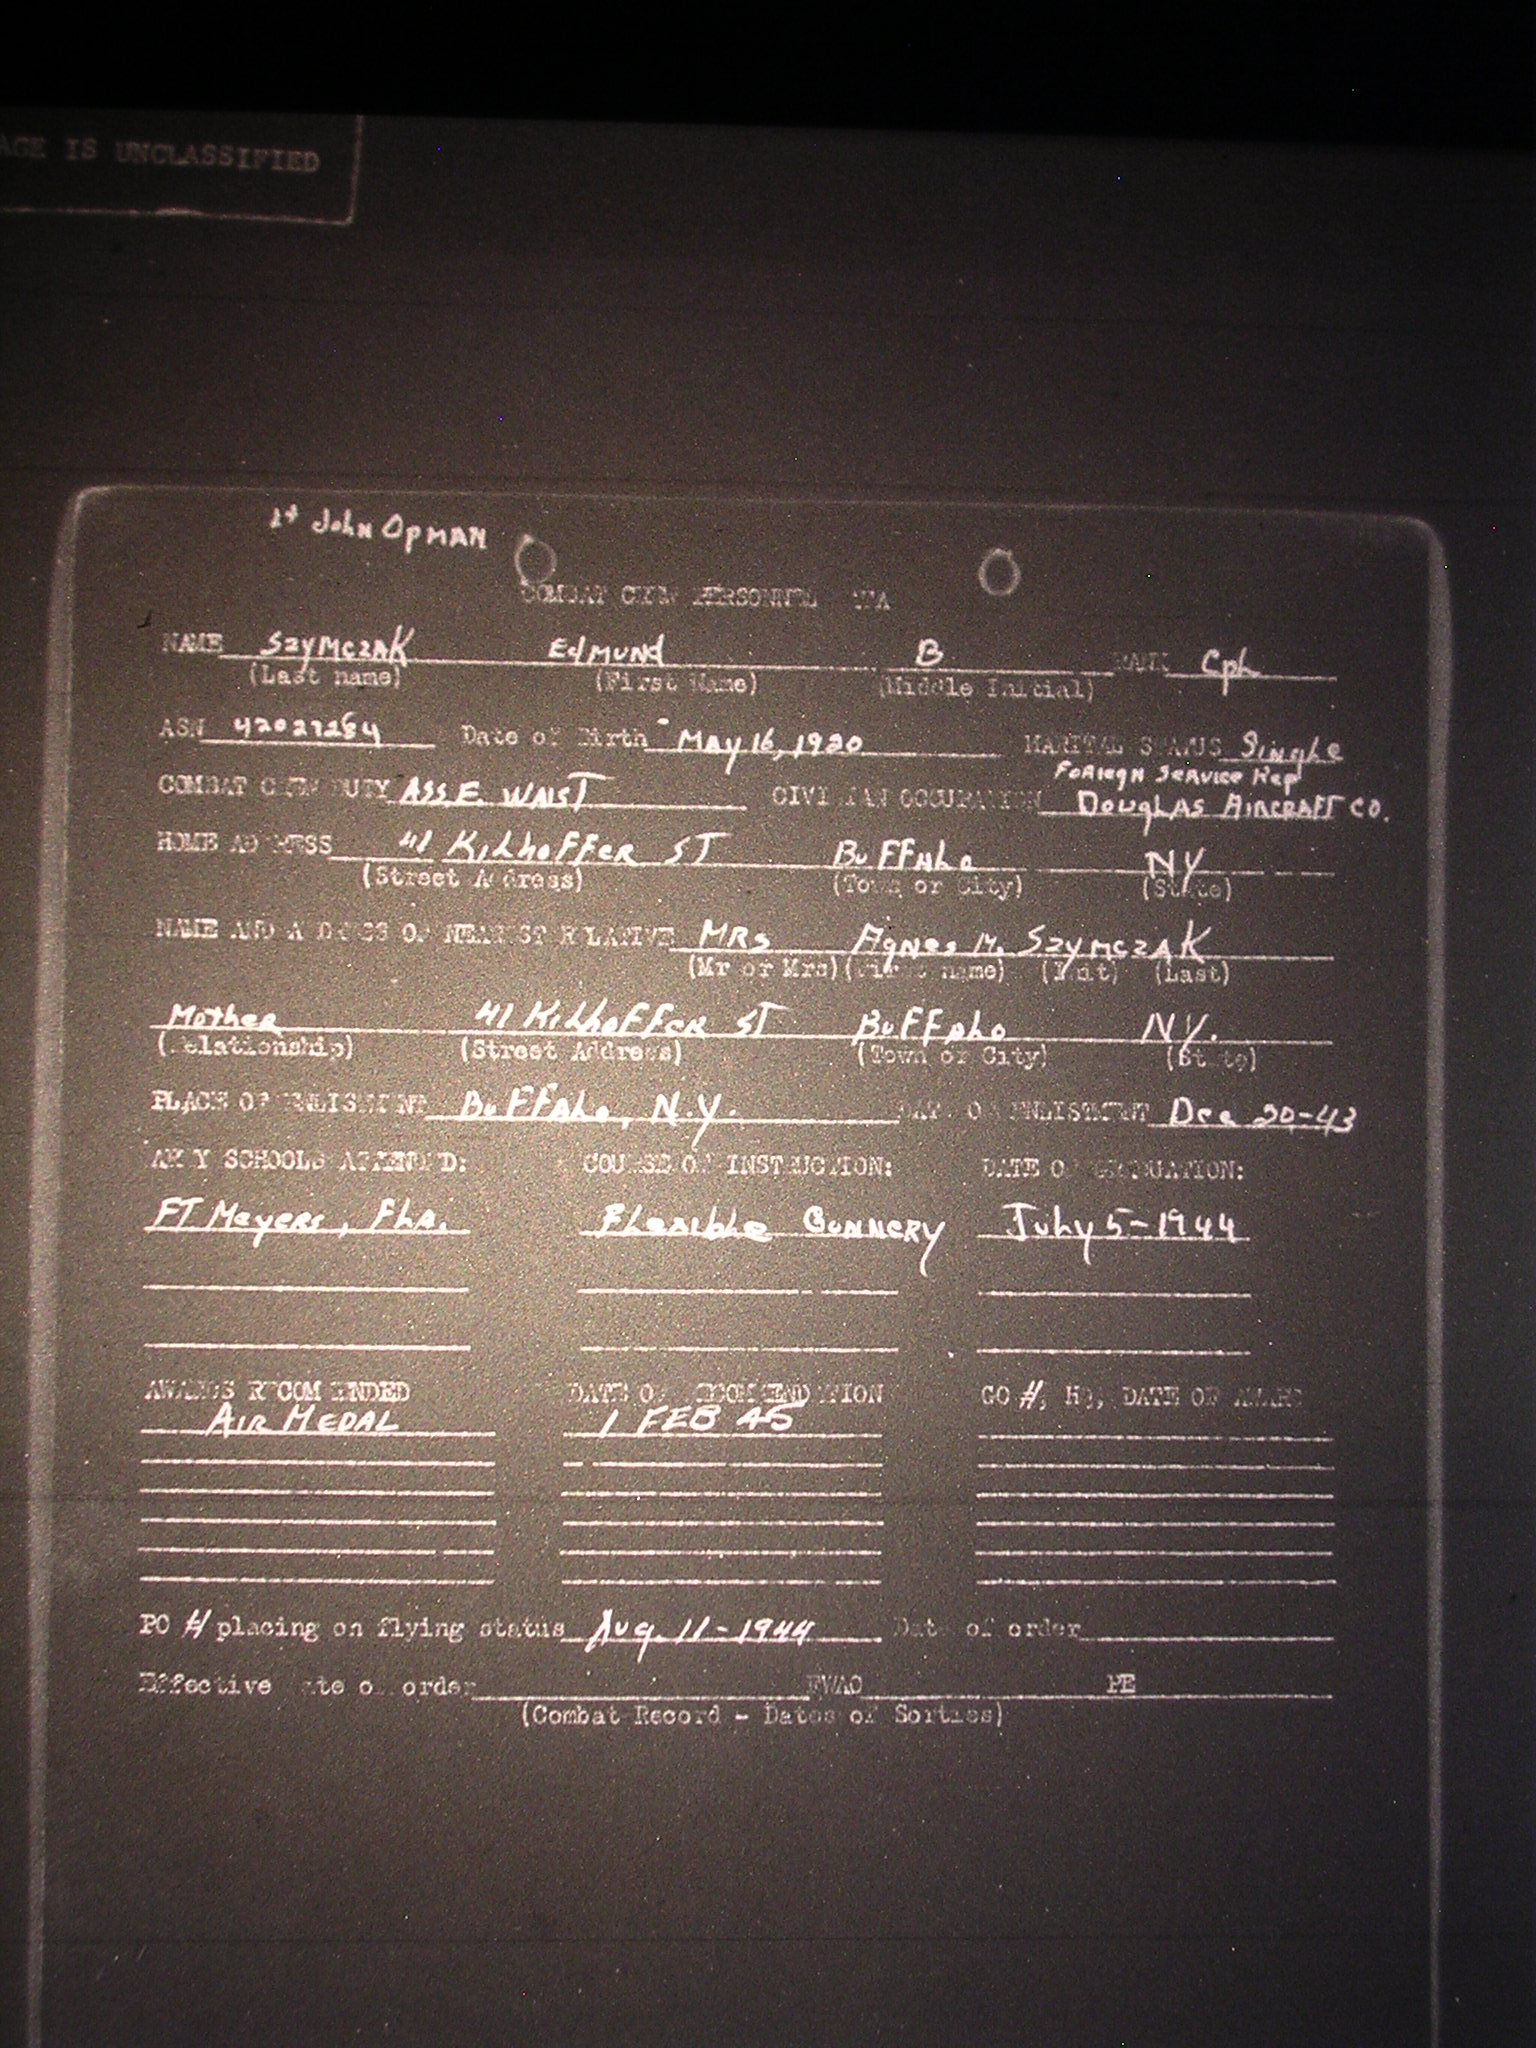 AGE IS UNCLASSIFIED
Lt John Opman
COMBAT CREW PERSONNEL
NAME Szymczak Edmund B RANK Cpl
(Last name) (First Name) (Middle Initial)
ASN Date of Birth May 16, 1920 MARITAL STATUS Single
Foreign Service Rep
COMBAT CREW DUTY ASS E. WAIST CIVILIAN OCCUPATION Douglas Aircraft Co.
HOME ADDRESS 41 Kilhoffer ST Buffalo NY
(Street Address) (Town or City) (State)
NAME AND ADDRESS OF NEAREST RELATIVE MRs Agnes M. Szymczak
(Mr or Mrs) (First name) (Init) (Last)
Mother 41 Kilhoffer ST Buffalo N.Y.
(Relationship) (Street Address) (Town or City) (State)
PLACE OF ENLISTMENT Buffalo, N.Y. DATE OF ENLISTMENT Dec 20-43
ARMY SCHOOLS ATTENDED: COURSE OF INSTRUCTION: DATE OF GRADUATION:
FT Meyers, Fla. Flexible Gunnery July 5-1944
AWARDS RECOMMENDED DATE OF RECOMMENDATION GO #, Hq, DATE OF AWARD
AIR MEDAL 1 FEB 45
PO # placing on flying status Aug. 11-1944 Date of order
Effective date of order EVAC PE
(Combat Record - Dates of Sorties)